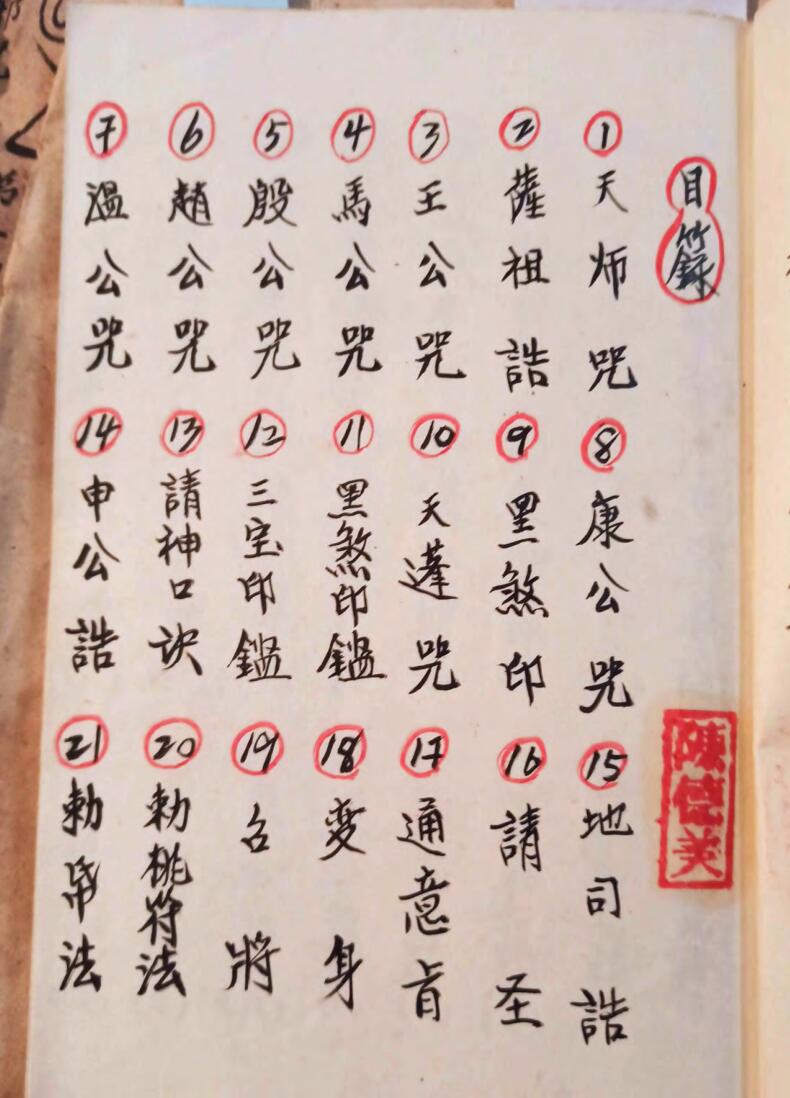 目籙
①天师咒
②薩祖誥
③王公咒
④馬公咒
⑤殷公咒
⑥趙公咒
⑦溫公咒
⑧康公咒
⑨黑煞印
⑩天蓬咒
⑪黑煞印鑑
⑫三宝印鑑
⑬請神口訣
⑭申公誥
⑮地司誥
⑯請圣
⑰通意旨
⑱变身
⑲召將
⑳勅桃符法
㉑勅帛法
陳德美